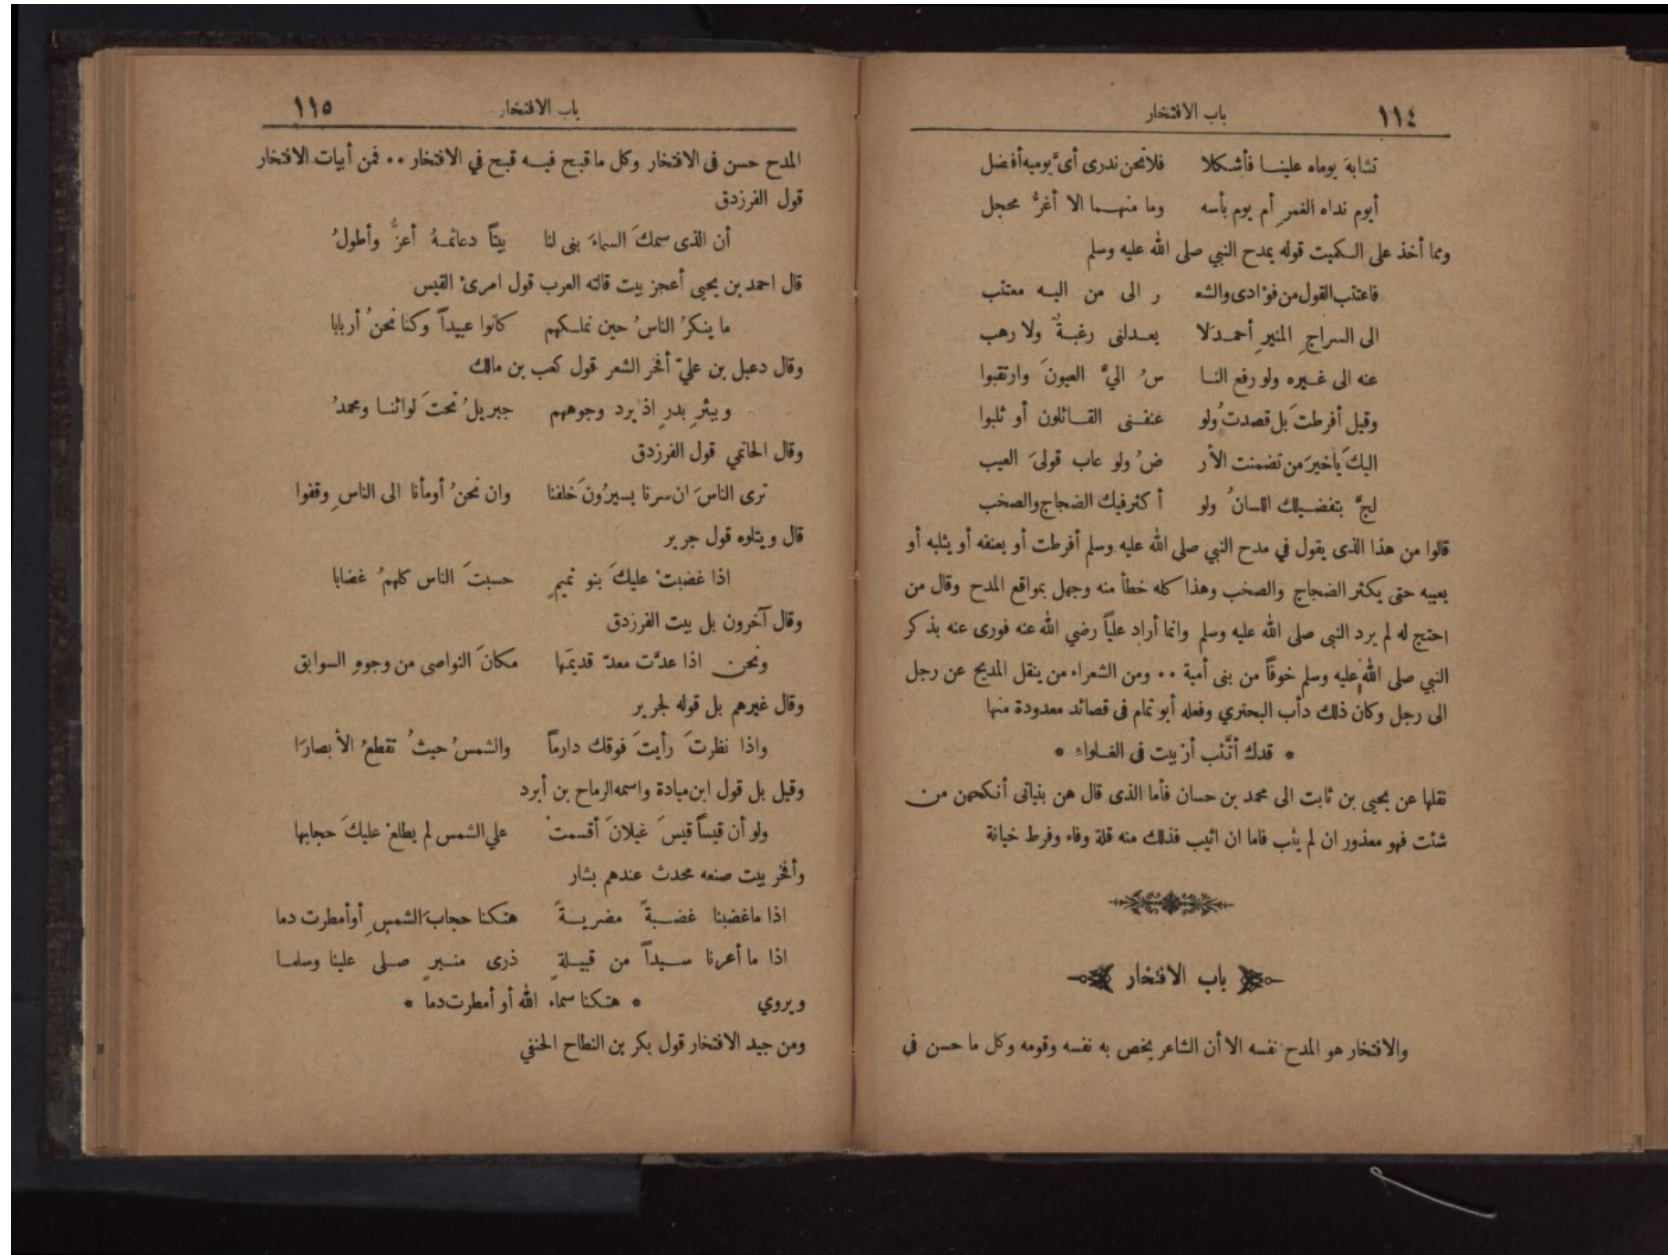 ١١٤ باب الافتخار
تشابهَ يوماه علينـا فأشـكلا فلانحن ندرى أىُّ يوميه أفضل
أيوم نداه الغمرِ أم يوم بأسه وما منهـما الا أغرُّ محجل
ومما أخذ على الكميت قوله يمدح النبي صلى الله عليه وسلم
فاعتتب القول من فؤادى والشعـ ر الى من اليـه معتتب
الى السراجِ المنيرِ أحمـدَ لا يعـدلنى رغبةٌ ولا رهب
عنه الى غـيره ولو رفع النـا سُ اليَّ العيونَ وارتقبوا
وقيل أفرطتَ بل قصدتُ ولو عنفـنى القـائلون أو ثلبوا
اليكَ ياخيرَ من تضمنت الأر ضُ ولو عاب قولىَ العيب
لجَّ بتفضـيلك اللسانُ ولو أكثر فيك الضجاج والصخب
قالوا من هذا الذى يقول في مدح النبي صلى الله عليه وسلم أفرطت أو يعنفه أو يثلبه أو
يعيبه حتى يكثر الضجاج والصخب وهذا كله خطأ منه وجهل بمواقع المدح وقال من
احتج له لم يرد النبى صلى الله عليه وسلم وانما أراد علياً رضي الله عنه فورى عنه بذكر
النبي صلى الله عليه وسلم خوفاً من بنى أمية ٠٠ ومن الشعراء من ينقل المديح عن رجل
الى رجل وكان ذلك دأب البحتري وفعله أبو تمام فى قصائد معدودة منها
* قدك أتَّئب أربيت فى الغـلواء *
نقلها عن يحيى بن ثابت الى محمد بن حسان فأما الذى قال هن بنياتى أنكحهن من
شئت فهو معذور ان لم يثب فاما ان اثيب فذلك منه قلة وفاء وفرط خيانة
باب الافتخار
والافتخار هو المدح نفسه الا أن الشاعر يخص به نفسه وقومه وكل ما حسن في
باب الافتخار ١١٥
المدح حسن فى الافتخار وكل ما قبح فيـه قبح في الافتخار ٠٠ فمن أبيات الافتخار
قول الفرزدق
أن الذى سمكَ السماءَ بنى لنا بيتاً دعائمـهُ أعزُّ وأطولُ
قال احمد بن يحيى أعجز بيت قالته العرب قول امرئ القيس
ما ينكرُ الناسُ حين نملـكهم كانوا عبيداً وكنا نحنُ أربابا
وقال دعبل بن عليّ أفخر الشعر قول كعب بن مالك
وببئرِ بدرٍ اذ يرد وجوههم جبريلُ تحتَ لوائنـا ومحمدُ
وقال الحاتمي قول الفرزدق
ترى الناسَ ان سرنا يسيرُونَ خلفنا وان نحنُ أومأنا الى الناسِ وقفوا
قال ويتلوه قول جرير
اذا غضبتْ عليكَ بنو تميمٍ حسبتَ الناس كلهمُ غضابا
وقال آخرون بل بيت الفرزدق
ونحن اذا عدَّت معدّ قديمَها مكانَ النواصى من وجوهِ السوابق
وقال غيرهم بل قوله لجرير
واذا نظرتَ رأيتَ فوقك دارماً والشمسُ حيثُ تقطعُ الأبصارَا
وقيل بل قول ابن ميادة واسمه الرماح بن أبرد
ولو أن قيساً قيسَ غيلانَ أقسمتْ علي الشمس لم يطلعْ عليكَ حجابها
وأفخر بيت صنعه محدث عندهم بشار
اذا ماغضبنا غضـبةً مضريـةً هتكنا حجابَ الشمسِ أو أمطرت دما
اذا ما أعرنا سـيداً من قبيـلةٍ ذرى منـبرٍ صـلى علينا وسلمـا
ويروي * هتكنا سماء الله أو أمطرت دما *
ومن جيد الافتخار قول بكر بن النطاح الحنفي